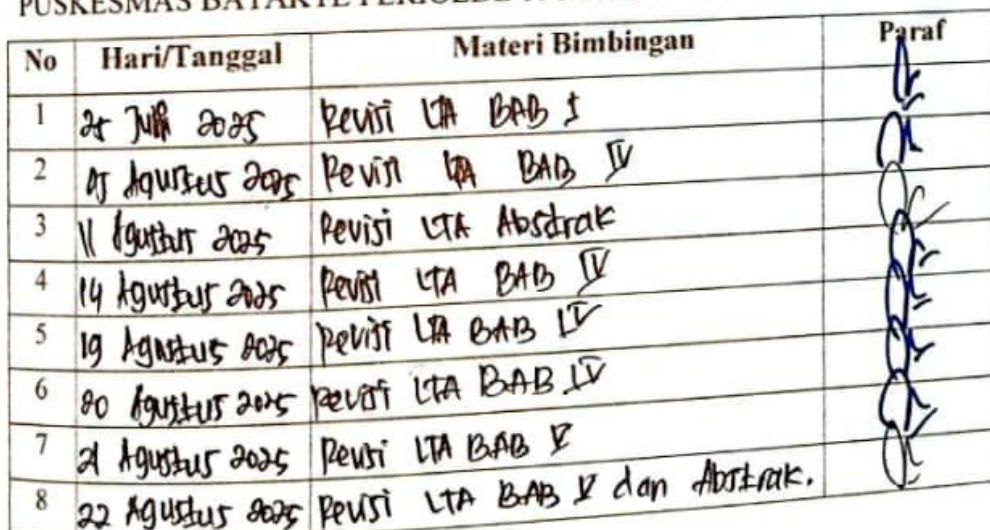 PUSKESMAS BATAKTE PERIOEDE
No Hari/Tanggal Materi Bimbingan Paraf
1 25 Juli 2025 Revisi LTA BAB I
2 05 Agustus 2025 Revisi LTA BAB IV
3 11 Agustus 2025 Revisi LTA Abstrak
4 14 Agustus 2025 Revisi LTA BAB IV
5 19 Agustus 2025 Revisi LTA BAB IV
6 20 Agustus 2025 Revisi LTA BAB IV
7 21 Agustus 2025 Revisi LTA BAB V
8 22 Agustus 2025 Revisi LTA BAB V dan Abstrak.